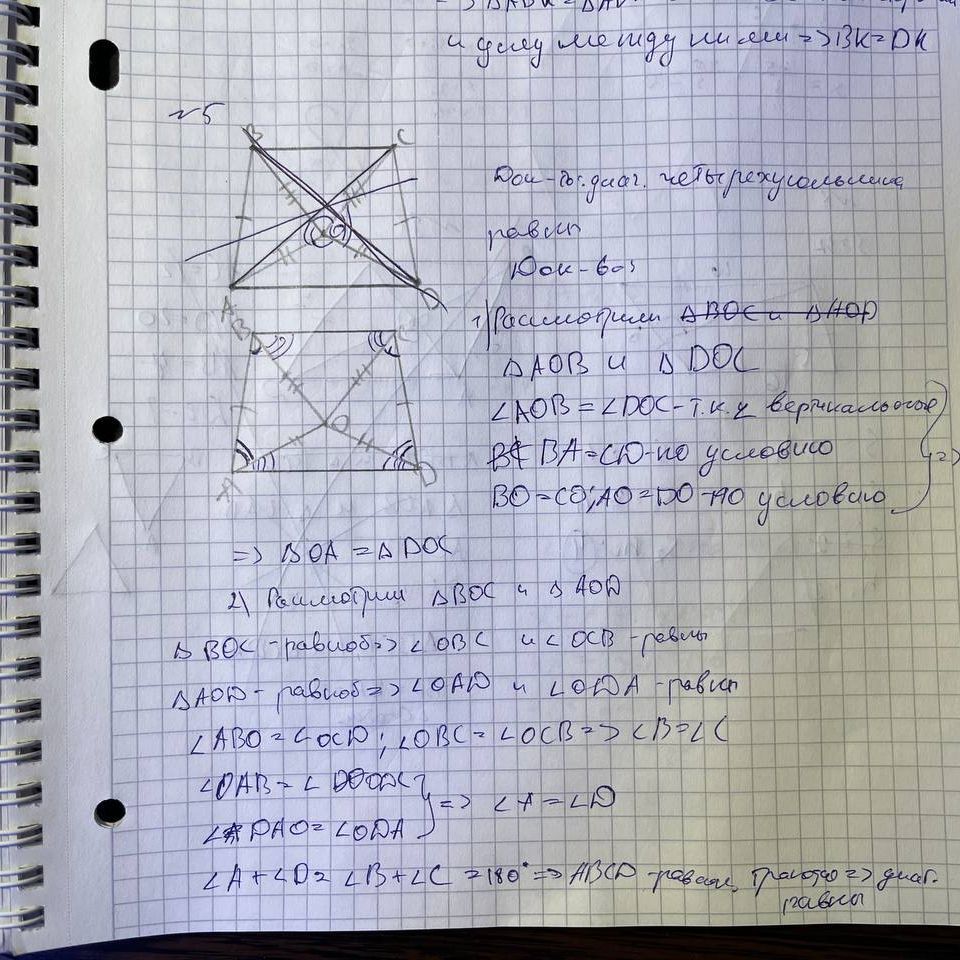 и углу между ними => BK = DK
№5
B C
A D
B C
O
A D
Док-ть: диаг. четырехугольника
равны
Док-во:
1) Рассмотрим △BOC и △AOD
△AOB и △DOC
∠AOB = ∠DOC - т.к.
BA = CD - по условию
BO = CO; AO = DO - по условию
=>
=> BOA = △DOC
2) Рассмотрим △BOC и △AOD
△BOC - равноб => ∠OBC и ∠OCB - равны
△AOD - равноб => ∠OAD и ∠ODA - равны
∠ABO = ∠OCD; ∠OBC = ∠OCB => ∠B = ∠C
∠OAB = ∠ODC
∠DAO = ∠ODA } => ∠A = ∠D
∠A + ∠D = ∠B + ∠C = 180° => ABCD - равноб. => диаг.
равны